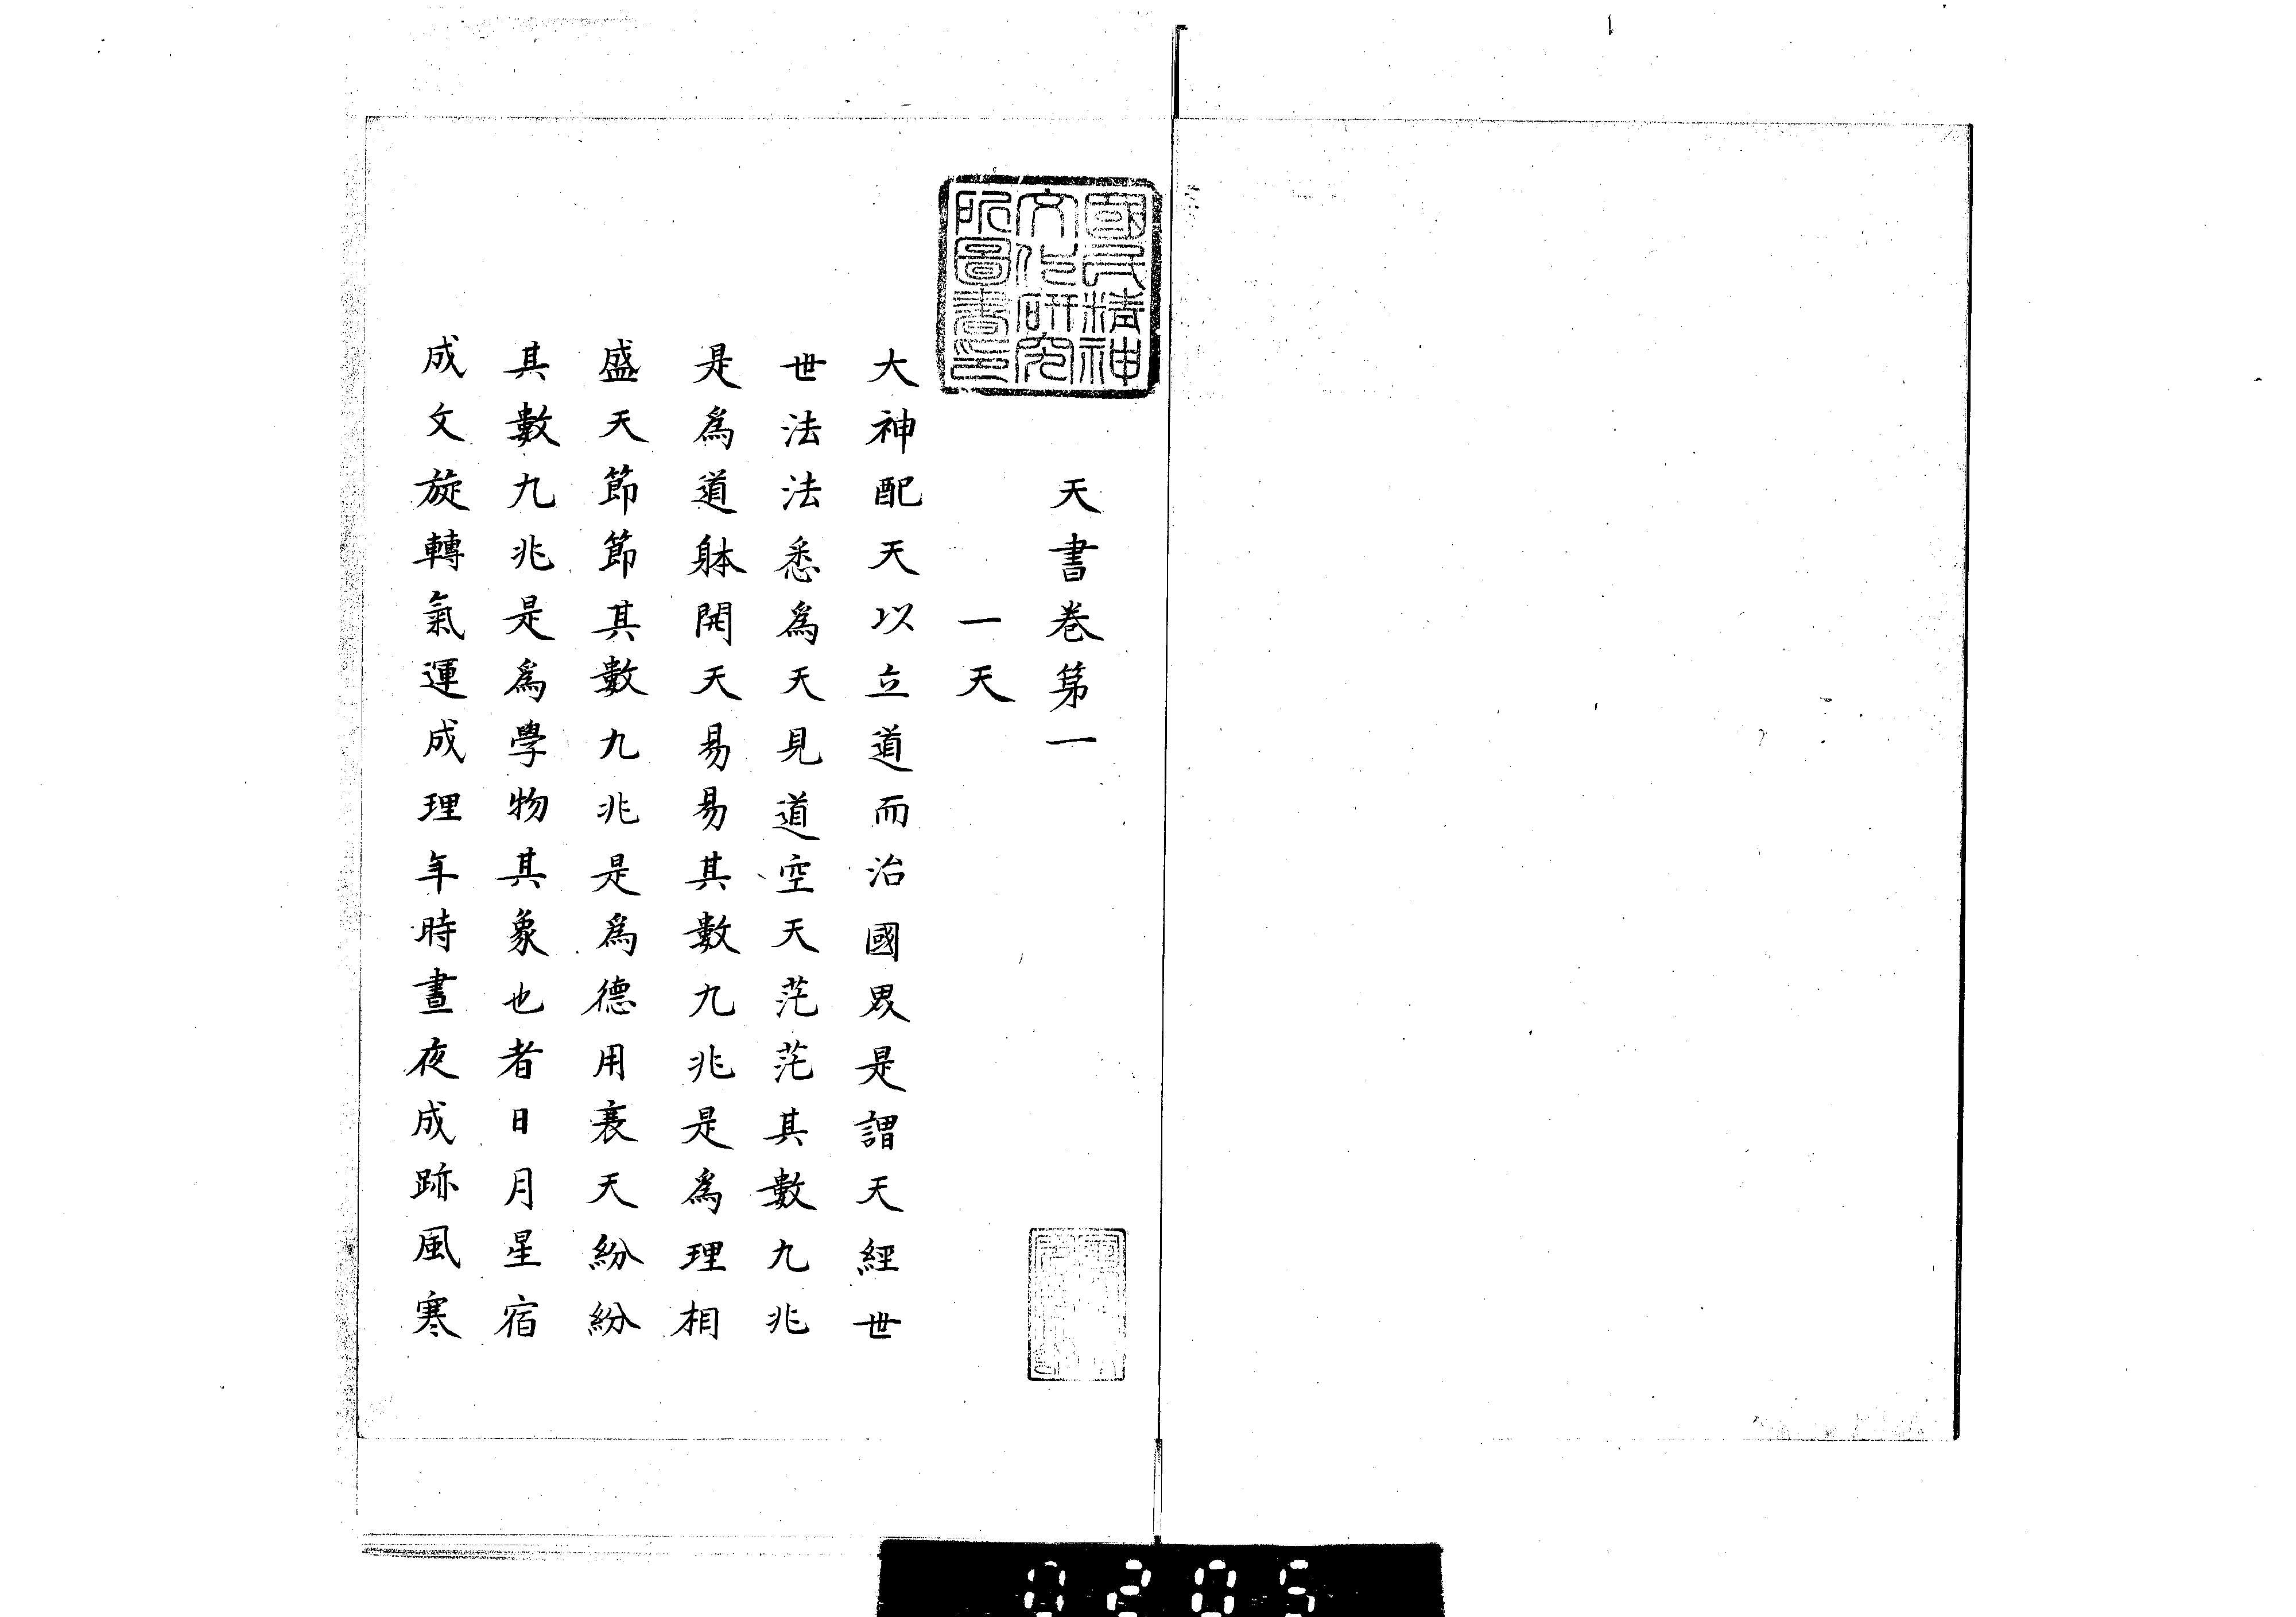 國民精神
文化研究
所圖書印
天書巻第一
一天
大神配天以立道而治國㽛是謂天經世
世法法悉爲天見道空天茫茫其數九兆
是爲道躰開天易易其數九兆是爲理相
盛天節節其數九兆是爲德用衰天紛紛
其數九兆是爲學物其象也者日月星宿
成文旋轉氣運成理年時晝夜成跡風寒
0205